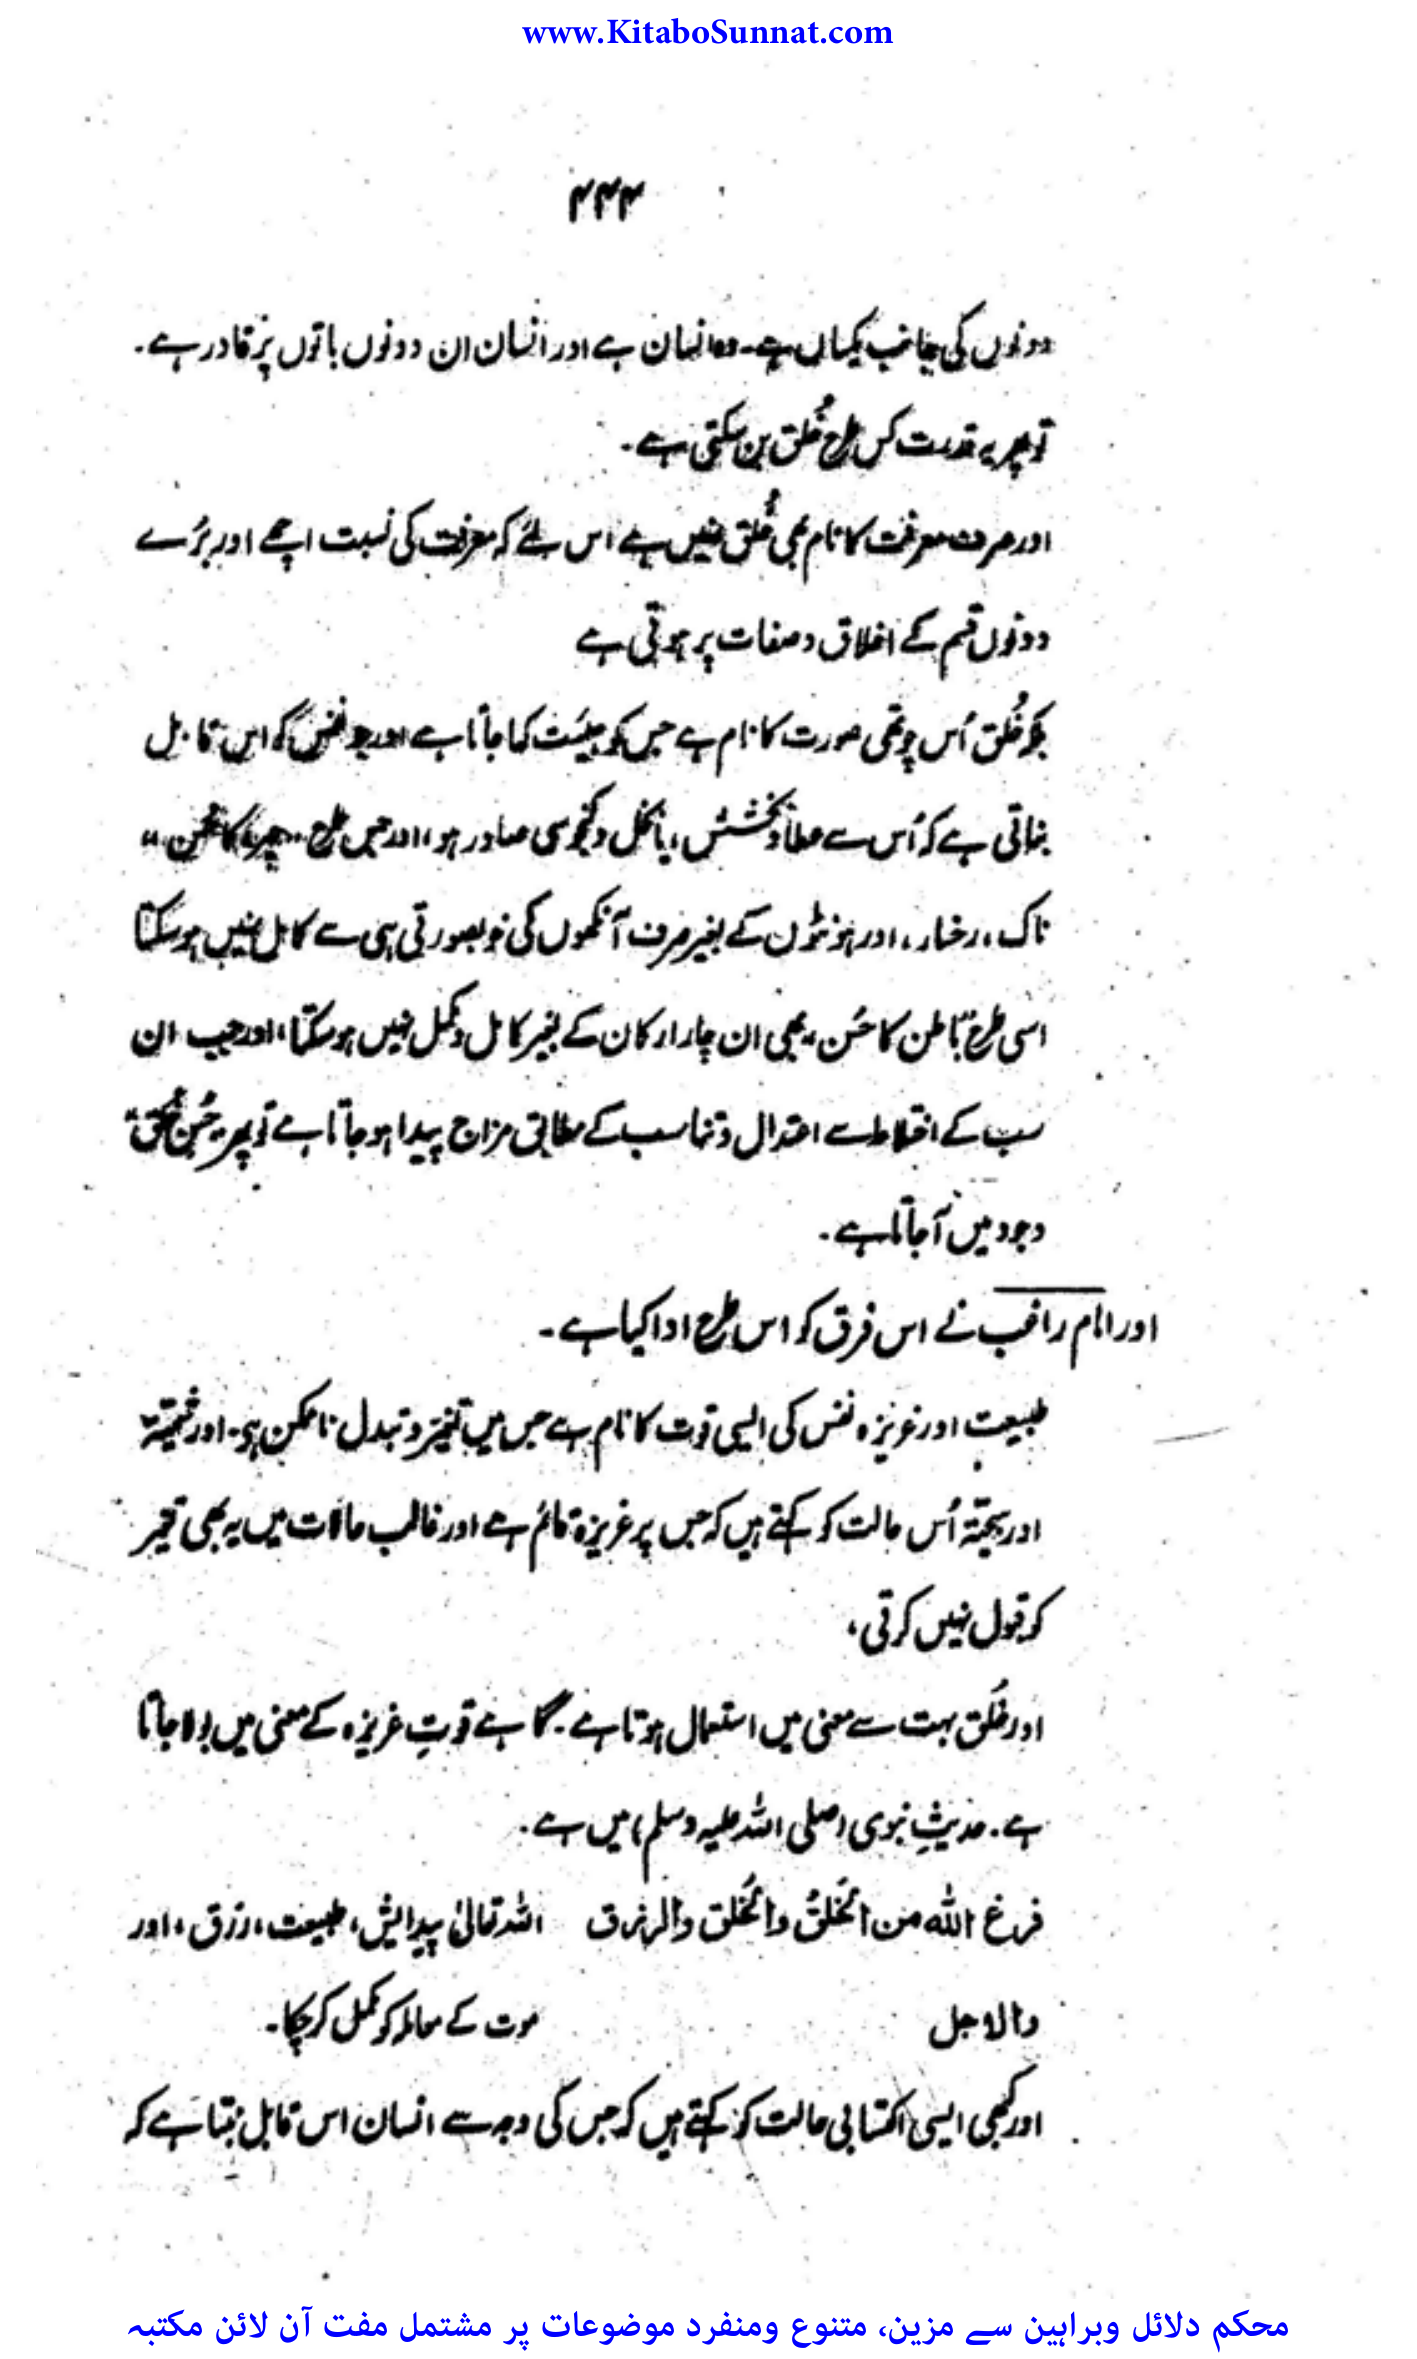 www.KitaboSunnat.com
۴۴۴
دونوں کی جانب یکساں ہے۔ وہ انسان ہے اور انسان ان دونوں باتوں پر قادر ہے۔
تو پھر یہ قدرت کس طرح خُلق بن سکتی ہے۔
اور صرف معرفت کا نام بھی خُلق نہیں ہے اس لئے کہ معرفت کی نسبت اچھے اور بُرے
دونوں قسم کے اخلاق و صفات پر ہوتی ہے
بلکہ خُلق اُس چوتھی صورت کا نام ہے جس کو ہیئت کہا جاتا ہے اور جو نفس کو اس قابل
بناتی ہے کہ اُس سے عطاء و بخشش، یا بخل و کنجوسی صادر ہو، اور جس طرح "چہرہ کا حُسن"
ناک، رخسار، اور ہونٹوں کے بغیر صرف آنکھوں کی خوبصورتی ہی سے کامل نہیں ہو سکتا
اسی طرح "باطن کا حُسن" بھی ان چار ارکان کے بغیر کامل و مکمل نہیں ہو سکتا، اور جب ان
سب کے اختلاط سے اعتدال و تناسب کے مطابق مزاج پیدا ہو جاتا ہے تو پھر "حُسنِ خُلق"
وجود میں آ جاتا ہے۔
اور امام راغب نے اس فرق کو اس طرح ادا کیا ہے۔
طبیعت اور غریزہ نفس کی ایسی قوت کا نام ہے جس میں تغیر و تبدل ناممکن ہو۔ اور شیمتہ
اور سجیتہ اُس حالت کو کہتے ہیں کہ جس پر غریزہ قائم ہے اور غالب حالات میں یہ بھی تغیر
کو قبول نہیں کرتی،
اور خُلق بہت سے معنی میں استعمال ہوتا ہے۔ گاہے قوتِ غریزہ کے معنی میں بولا جاتا
ہے۔ حدیثِ نبوی (صلی اللہ علیہ وسلم) میں ہے۔
فرغ الله من الخَلقُ والخُلق والرزق اللہ تعالیٰ پیدایش، طبیعت، رزق، اور
والاجل موت کے معاملہ کو مکمل کر چکا۔
اور کبھی ایسی اکتسابی حالت کو کہتے ہیں کہ جس کی وجہ سے انسان اس قابل بنتا ہے کہ
محکم دلائل وبراہین سے مزین، متنوع ومنفرد موضوعات پر مشتمل مفت آن لائن مکتبہ